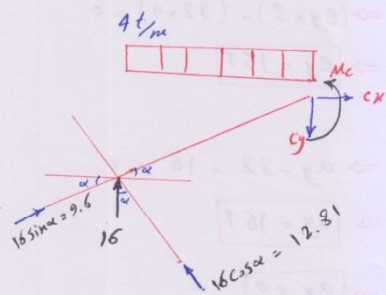 4 t/m
Mc
cx
cy
α
α
α
16 sin α = 9.6
16
16 cos α = 12.81